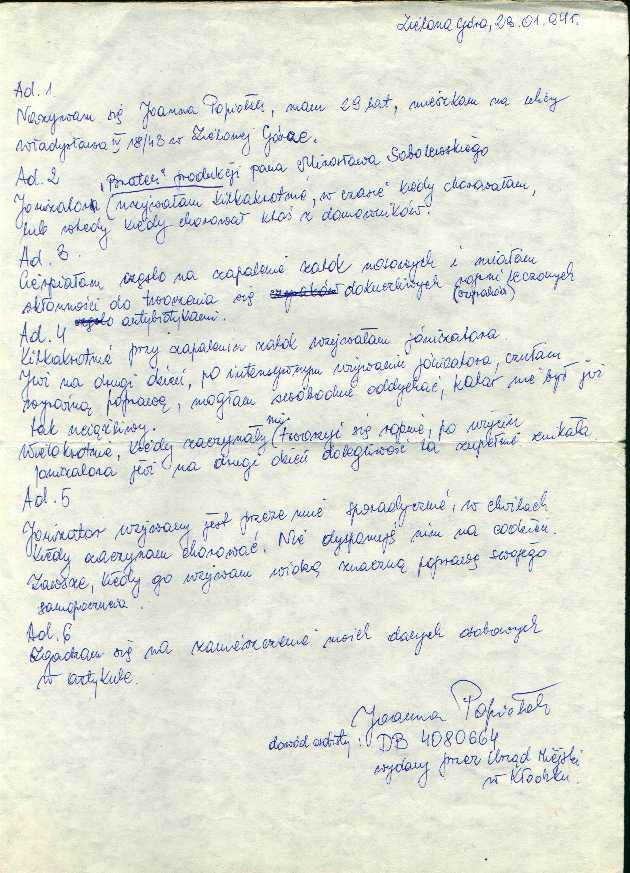 Zielona Góra, 28.01.94r.
Ad. 1
Nazywam się Joanna Popiołek, mam 29 lat, mieszkam na ulicy
Władysława IV 18/43 w Zielonej Górze.
Ad. 2 produkcji pana Mirosława Sobolewskiego
Jonizatora używałam kilkakrotnie, w czasie kiedy chorowałam,
lub wtedy kiedy chorował ktoś z domowników.
Ad. 3
Cierpiałam często na zapalenie zatok nosowych i miałam
skłonności do tworzenia się czyraków dokuczliwych ropni leczonych
(czyraków)
często antybiotykami.
Ad. 4
Kilkakrotnie przy zapaleniu zatok używałam jonizatora.
Już na drugi dzień, po intensywnym używaniu jonizatora, czułam
wyraźną poprawę, mogłam swobodnie oddychać, katar nie był już
tak uciążliwy.
Wielokrotnie, kiedy zaczynały mi tworzyć się ropnie, po użyciu
jonizatora już na drugi dzień dolegliwość ta zupełnie znikała.
Ad. 5
Jonizator używany jest przeze mnie sporadycznie, w chwilach
kiedy zaczynam chorować. Nie dysponuję nim na codzień.
Zawsze, kiedy go używam widzę znaczną poprawę swojego
samopoczucia.
Ad. 6
Zgadzam się na zamieszczenie moich danych osobowych
w artykule.
Joanna Popiołek
dowód osobisty: DB 4080664
wydany przez Urząd Miejski
w Kłodzku.